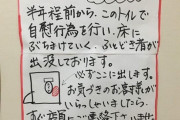 半年程前から、このトイレで
自慰行為を行い、床に
ぶちまけていく、ふとどき者が
出没しております。
必ずここに出します。
お気づきのお客様が
いらっしゃいましたら